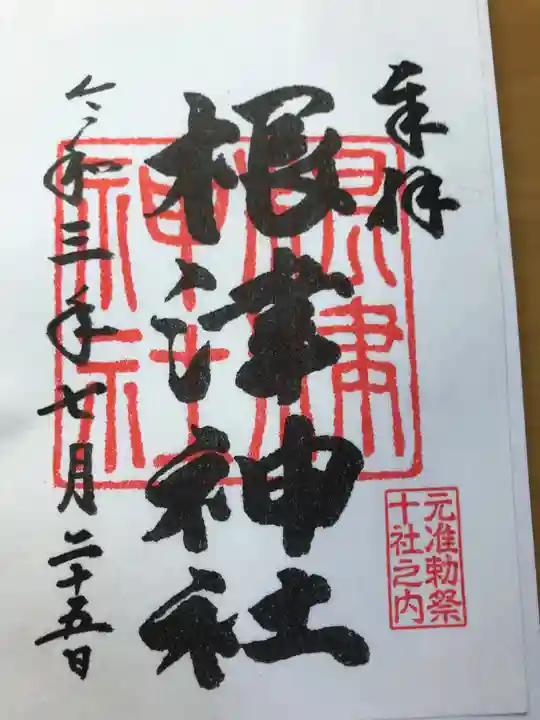 奉拝
根津神社
根津神社
元准勅祭
十社之内
令和三年七月二十五日